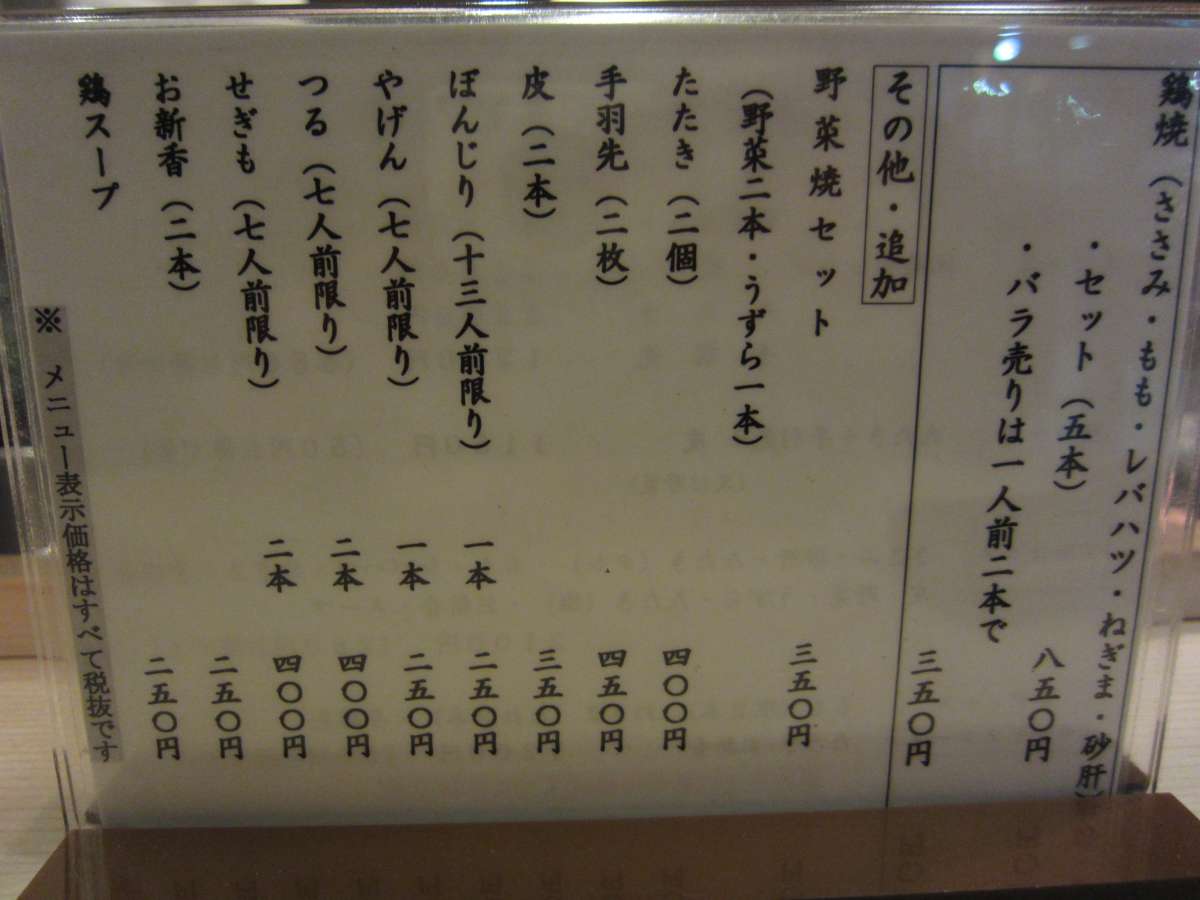 鶏焼（ささみ・もも・レバハツ・ねぎま・砂肝）
・セット（五本） 八五〇円
・バラ売りは一人前二本で 三五〇円
その他・追加
野菜焼セット 三五〇円
（野菜二本・うずら一本）
たたき（二個） 四〇〇円
手羽先（二枚） 四五〇円
皮（二本） 三五〇円
ぼんじり（十三人前限り） 一本 二五〇円
やげん（七人前限り） 一本 二五〇円
つる（七人前限り） 二本 四〇〇円
せぎも（七人前限り） 二本 四〇〇円
お新香（二本） 二五〇円
鶏スープ 二五〇円
※ メニュー表示価格はすべて税抜です